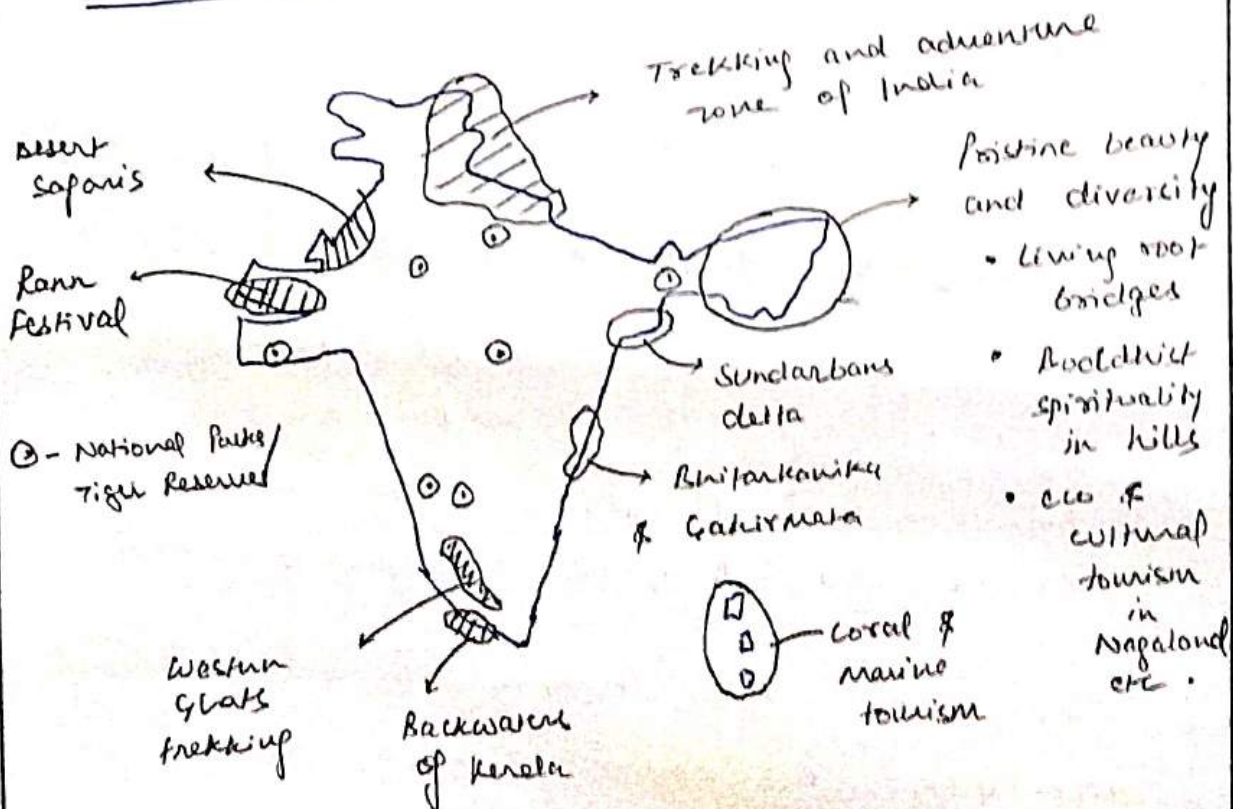 Trekking and adventure
zone of India
Desert
Safaris
Rann
Festival
Pristine beauty
and divercity
• Living root
bridges
• Buddhist
spirituality
in hills
• eco &
cultural
tourism
in
Nagaland
etc.
Sundarbans
delta
⊙ - National Parks/
Tiger Reserves
Bhitarkanika
& Gahirmata
Coral &
Marine
tourism
Western
Ghats
trekking
Backwaters
of Kerela